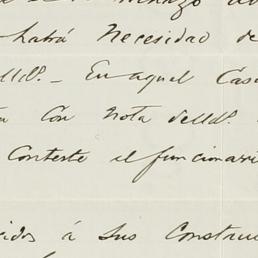 habrá Necesidad de
Md°. – En aquel Cas
Con Nota del Md°.
Conteste el funcionari
cidos á Sus Constru